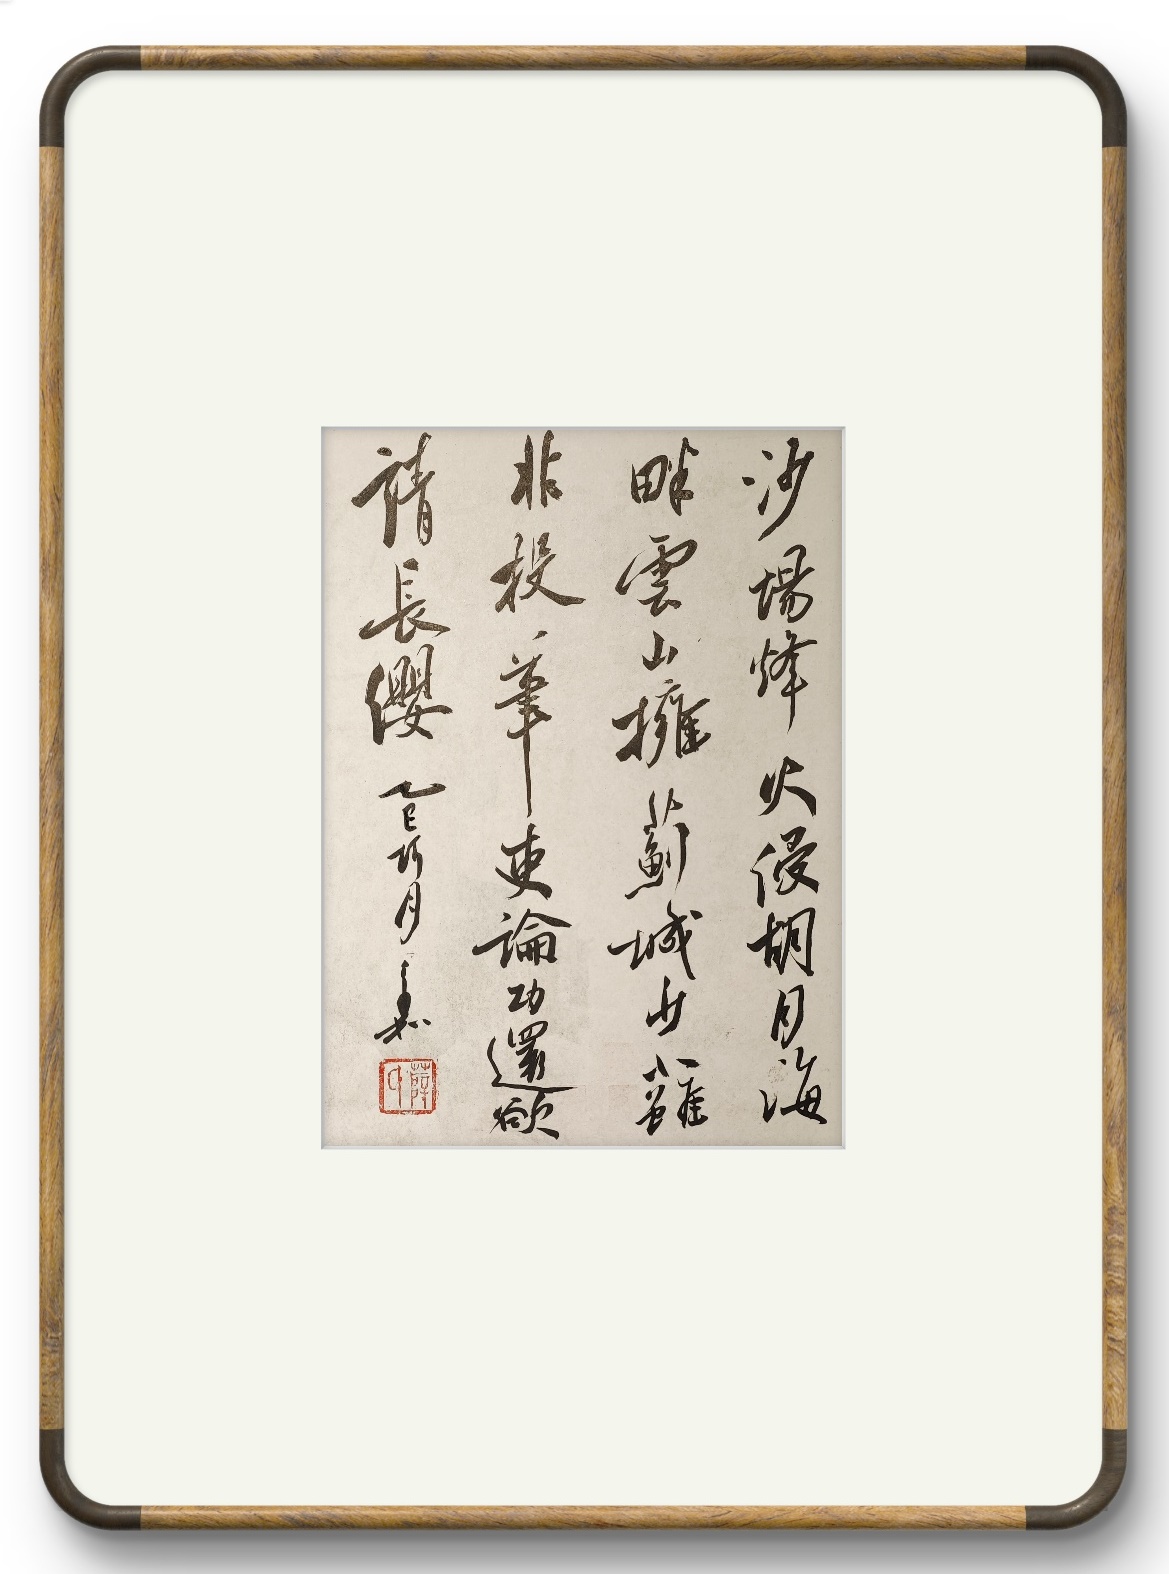 沙場烽火侵胡月海
畔雲山擁薊城少雖
非投筆吏論功還欲
請長纓 乙巳巧月
薛